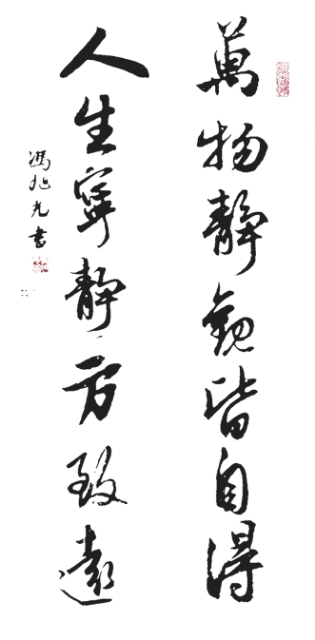 萬物靜觀皆自得
人生寧靜方致遠
馮旭光書